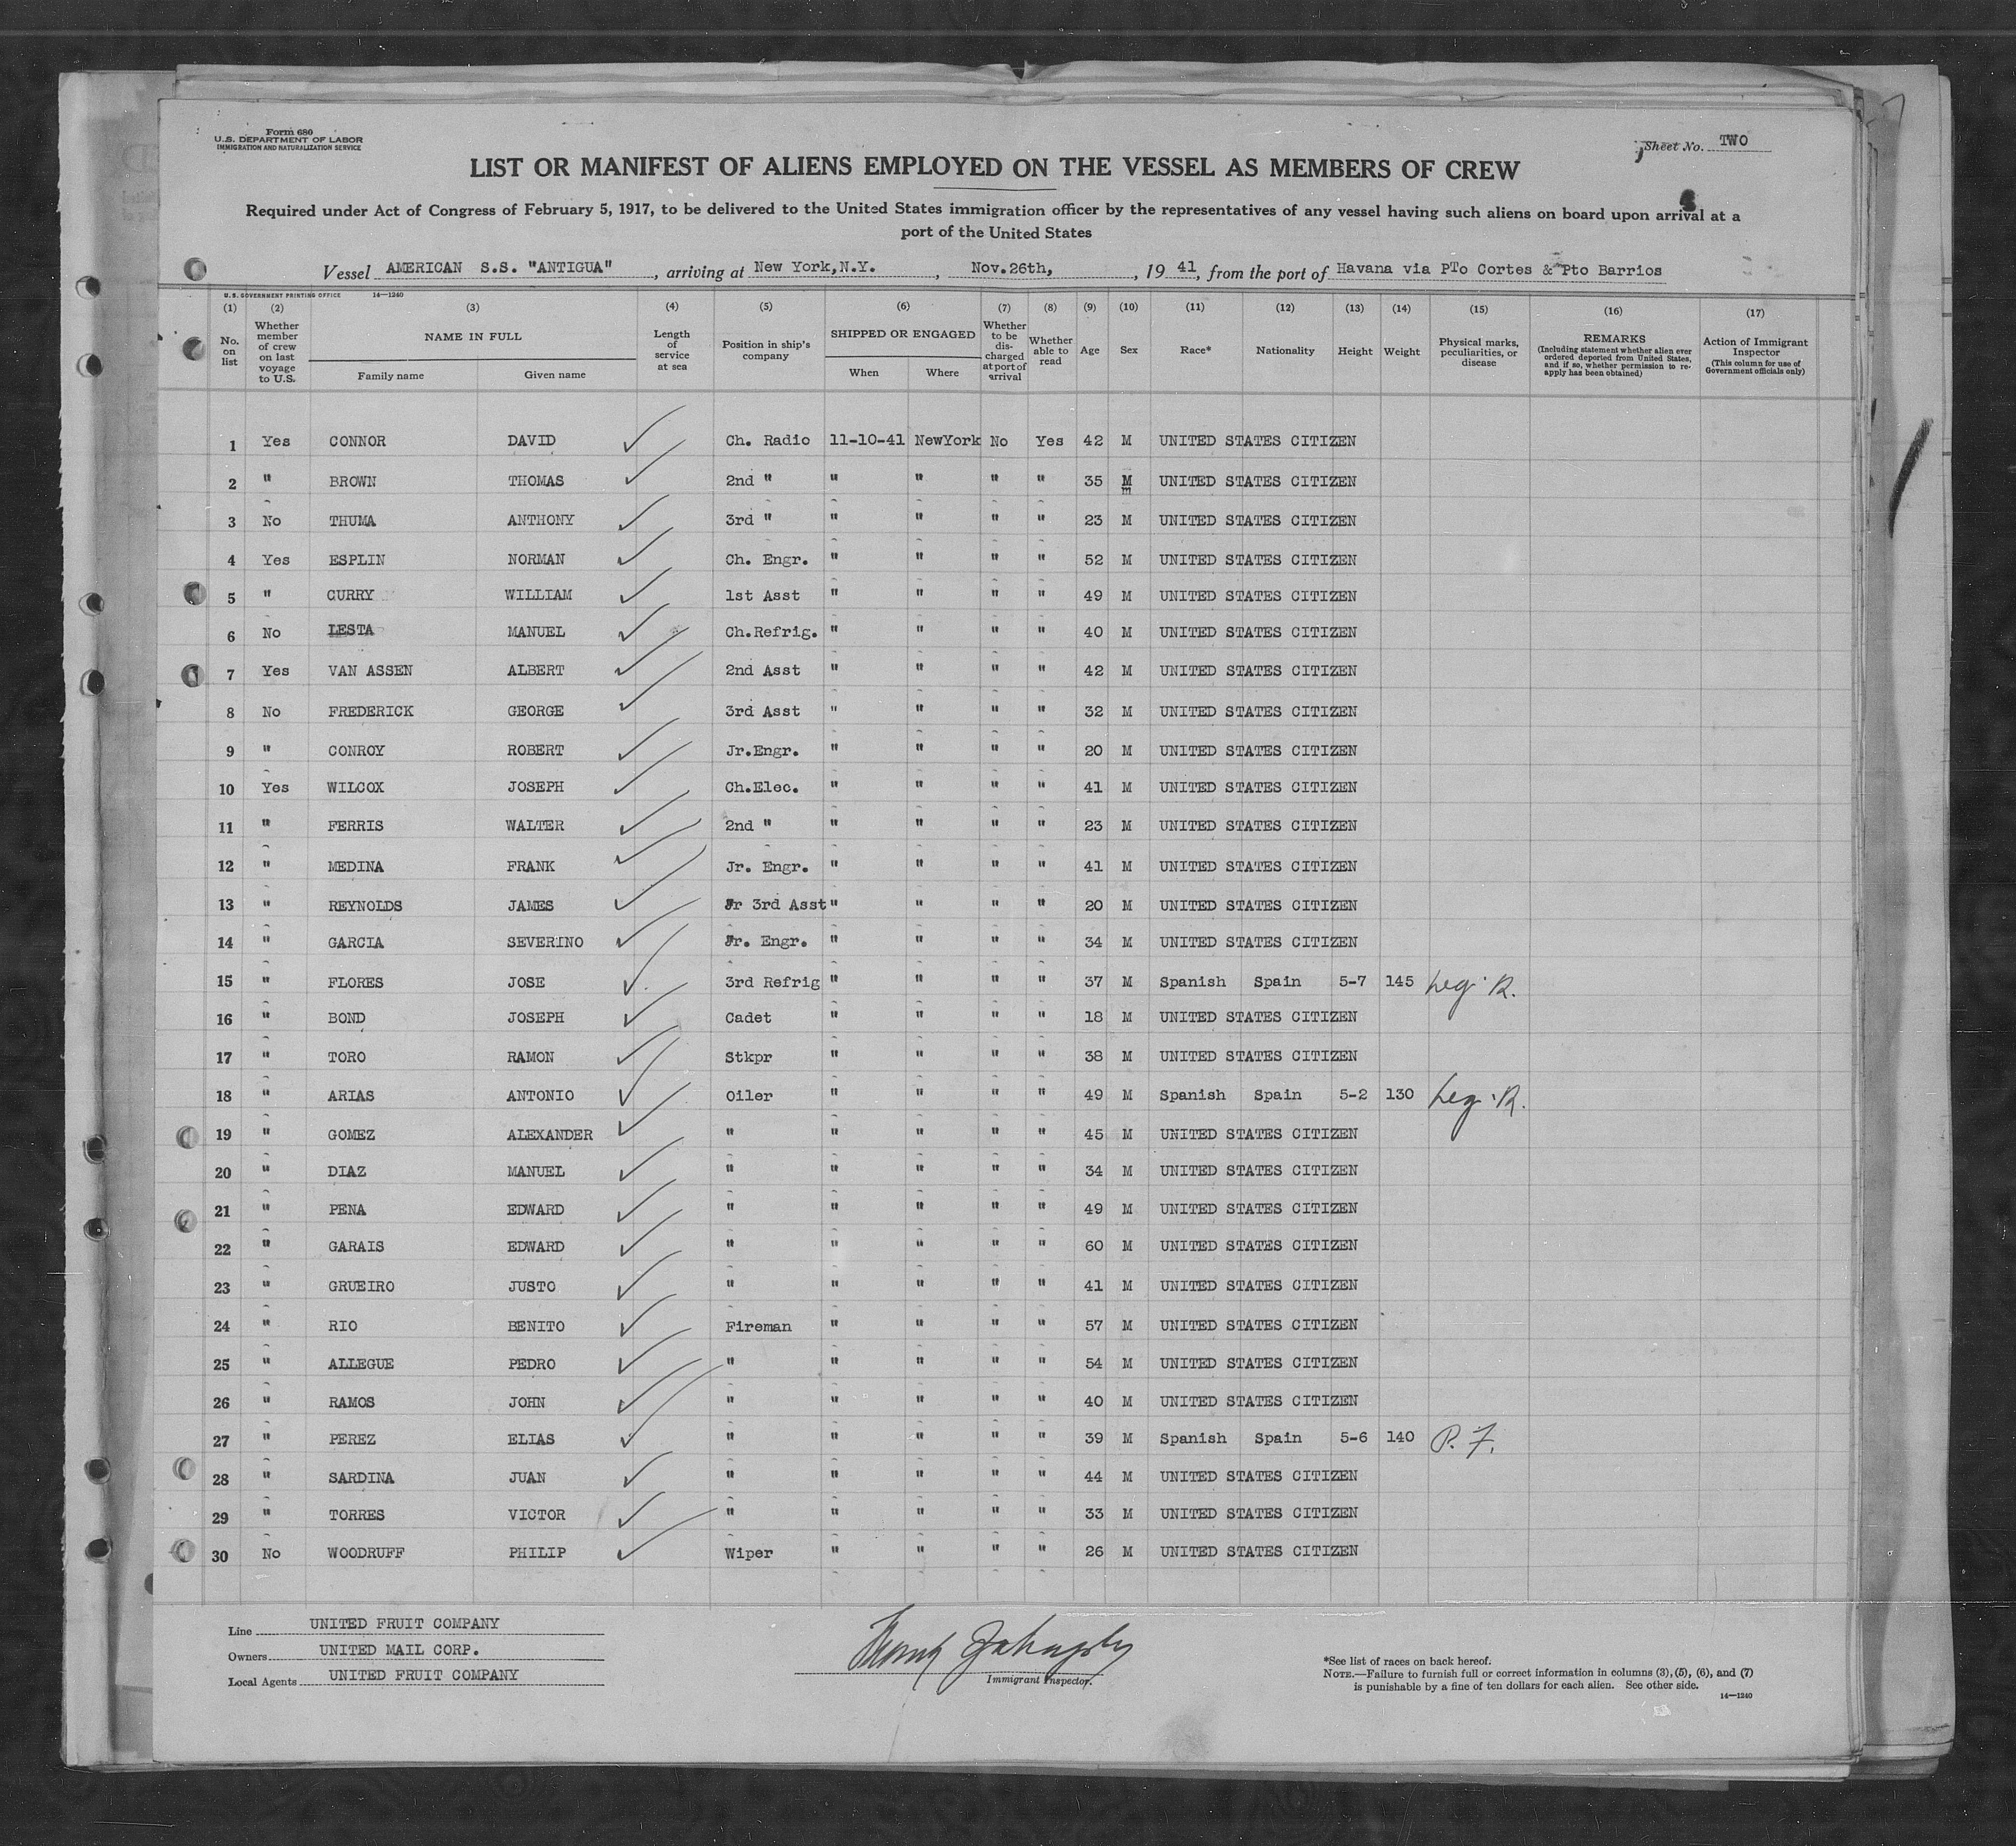 Form 680
U.S. DEPARTMENT OF LABOR
IMMIGRATION AND NATURALIZATION SERVICE
Sheet No. TWO
LIST OR MANIFEST OF ALIENS EMPLOYED ON THE VESSEL AS MEMBERS OF CREW
Required under Act of Congress of February 5, 1917, to be delivered to the United States immigration officer by the representatives of any vessel having such aliens on board upon arrival at a
port of the United States
Vessel AMERICAN S.S. "ANTIGUA", arriving at New York,N.Y., Nov.26th, 19 41, from the port of Havana via PTo Cortes & Pto Barrios
U.S. GOVERNMENT PRINTING OFFICE 14—1240
(1) (2) (3) (4) (5) (6) (7) (8) (9) (10) (11) (12) (13) (14) (15) (16) (17)
No. on list
Whether member of crew on last voyage to U.S.
NAME IN FULL
Family name Given name
Length of service at sea
Position in ship's company
SHIPPED OR ENGAGED
When Where
Whether to be discharged at port of arrival
Whether able to read
Age
Sex
Race*
Nationality
Height
Weight
Physical marks, peculiarities, or disease
REMARKS
(Including statement whether alien ever ordered deported from United States, and if so, whether permission to reapply has been obtained)
Action of Immigrant Inspector
(This column for use of Government officials only)
1 Yes CONNOR DAVID Ch. Radio 11-10-41 NewYork No Yes 42 M UNITED STATES CITIZEN
2 " BROWN THOMAS 2nd " " " " " 35 M UNITED STATES CITIZEN
3 No THUMA ANTHONY 3rd " " " " " 23 M UNITED STATES CITIZEN
4 Yes ESPLIN NORMAN Ch. Engr. " " " " 52 M UNITED STATES CITIZEN
5 " CURRY WILLIAM 1st Asst " " " " 49 M UNITED STATES CITIZEN
6 No LESTA MANUEL Ch.Refrig. " " " " 40 M UNITED STATES CITIZEN
7 Yes VAN ASSEN ALBERT 2nd Asst " " " " 42 M UNITED STATES CITIZEN
8 No FREDERICK GEORGE 3rd Asst " " " " 32 M UNITED STATES CITIZEN
9 " CONROY ROBERT Jr.Engr. " " " " 20 M UNITED STATES CITIZEN
10 Yes WILCOX JOSEPH Ch.Elec. " " " " 41 M UNITED STATES CITIZEN
11 " FERRIS WALTER 2nd " " " " " 23 M UNITED STATES CITIZEN
12 " MEDINA FRANK Jr. Engr. " " " " 41 M UNITED STATES CITIZEN
13 " REYNOLDS JAMES Jr 3rd Asst " " " " 20 M UNITED STATES CITIZEN
14 " GARCIA SEVERINO Jr. Engr. " " " " 34 M UNITED STATES CITIZEN
15 " FLORES JOSE 3rd Refrig " " " " 37 M Spanish Spain 5-7 145 Leg. R.
16 " BOND JOSEPH Cadet " " " " 18 M UNITED STATES CITIZEN
17 " TORO RAMON Stkpr " " " " 38 M UNITED STATES CITIZEN
18 " ARIAS ANTONIO Oiler " " " " 49 M Spanish Spain 5-2 130 Leg. R.
19 " GOMEZ ALEXANDER " " " " " 45 M UNITED STATES CITIZEN
20 " DIAZ MANUEL " " " " " 34 M UNITED STATES CITIZEN
21 " PENA EDWARD " " " " " 49 M UNITED STATES CITIZEN
22 " GARAIS EDWARD " " " " " 60 M UNITED STATES CITIZEN
23 " GRUEIRO JUSTO " " " " " 41 M UNITED STATES CITIZEN
24 " RIO BENITO Fireman " " " " 57 M UNITED STATES CITIZEN
25 " ALLEGUE PEDRO " " " " " 54 M UNITED STATES CITIZEN
26 " RAMOS JOHN " " " " " 40 M UNITED STATES CITIZEN
27 " PEREZ ELIAS " " " " " 39 M Spanish Spain 5-6 140 P. F.
28 " SARDINA JUAN " " " " " 44 M UNITED STATES CITIZEN
29 " TORRES VICTOR " " " " " 33 M UNITED STATES CITIZEN
30 No WOODRUFF PHILIP Wiper " " " " 26 M UNITED STATES CITIZEN
Line UNITED FRUIT COMPANY
Owners UNITED MAIL CORP.
Local Agents UNITED FRUIT COMPANY
Immigrant Inspector.
*See list of races on back hereof.
NOTE.—Failure to furnish full or correct information in columns (3), (5), (6), and (7)
is punishable by a fine of ten dollars for each alien. See other side.
14—1240